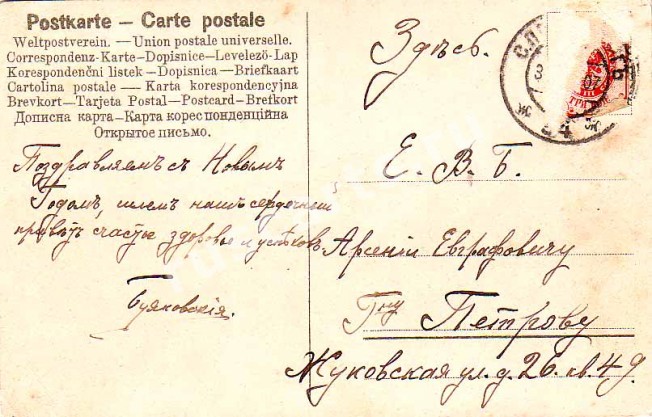 Postkarte — Carte postale
Weltpostverein. — Union postale universelle.
Correspondenz-Karte—Dopisnice—Levelező-Lap
Korespondenční listek—Dopisnica—Briefkaart
Cartolina postale — Karta korespondencyjna
Brevkort—Tarjeta Postal—Postcard—Brefkort
Дописна карта—Карта кореспонденційна
Открытое письмо.
Поздравляемъ съ Новымъ
Годомъ, шлемъ нашъ сердечный
привѣтъ, счастье здоровье и успѣховъ
Буяковскія.
Здѣсь.
Е. В. Б.
Арсенію Евграфовичу
Гну Петрову
Жуковская ул. д. 26. кв. 49